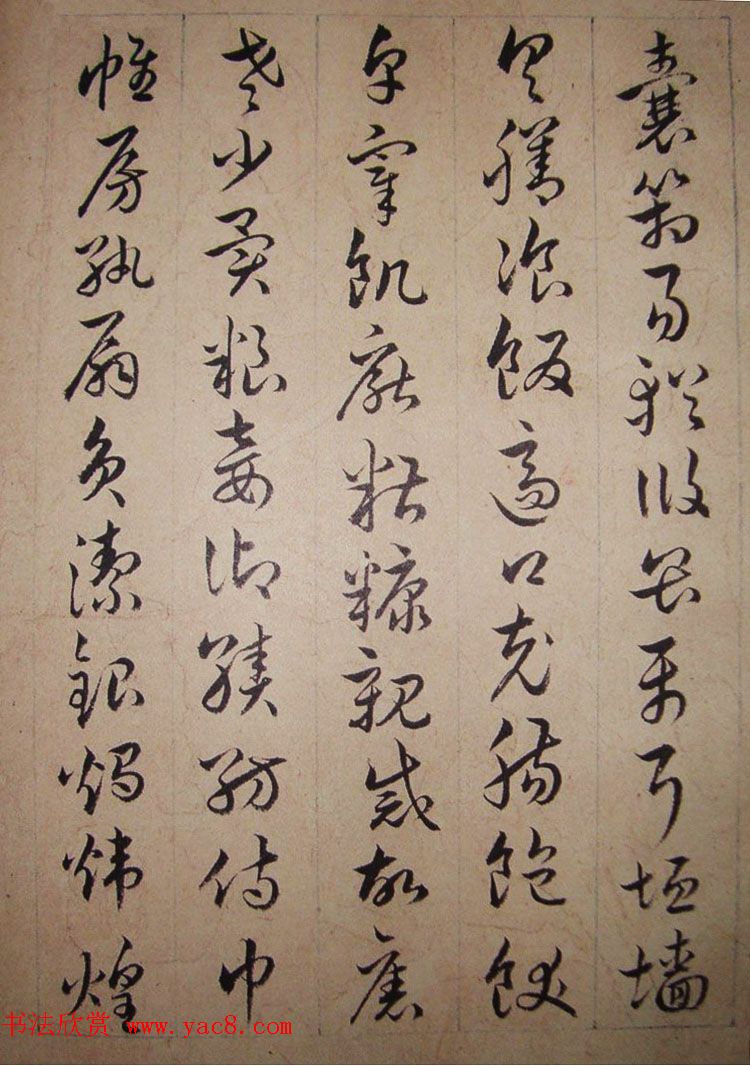 囊箱易輶攸畏屬耳垣墻
具膳飡飯適口充腸飽飫
烹宰飢厭糟糠親戚故舊
老少異糧妾御績紡侍巾
帷房紈扇員潔銀燭煒煌
书法欣赏 www.yac8.com